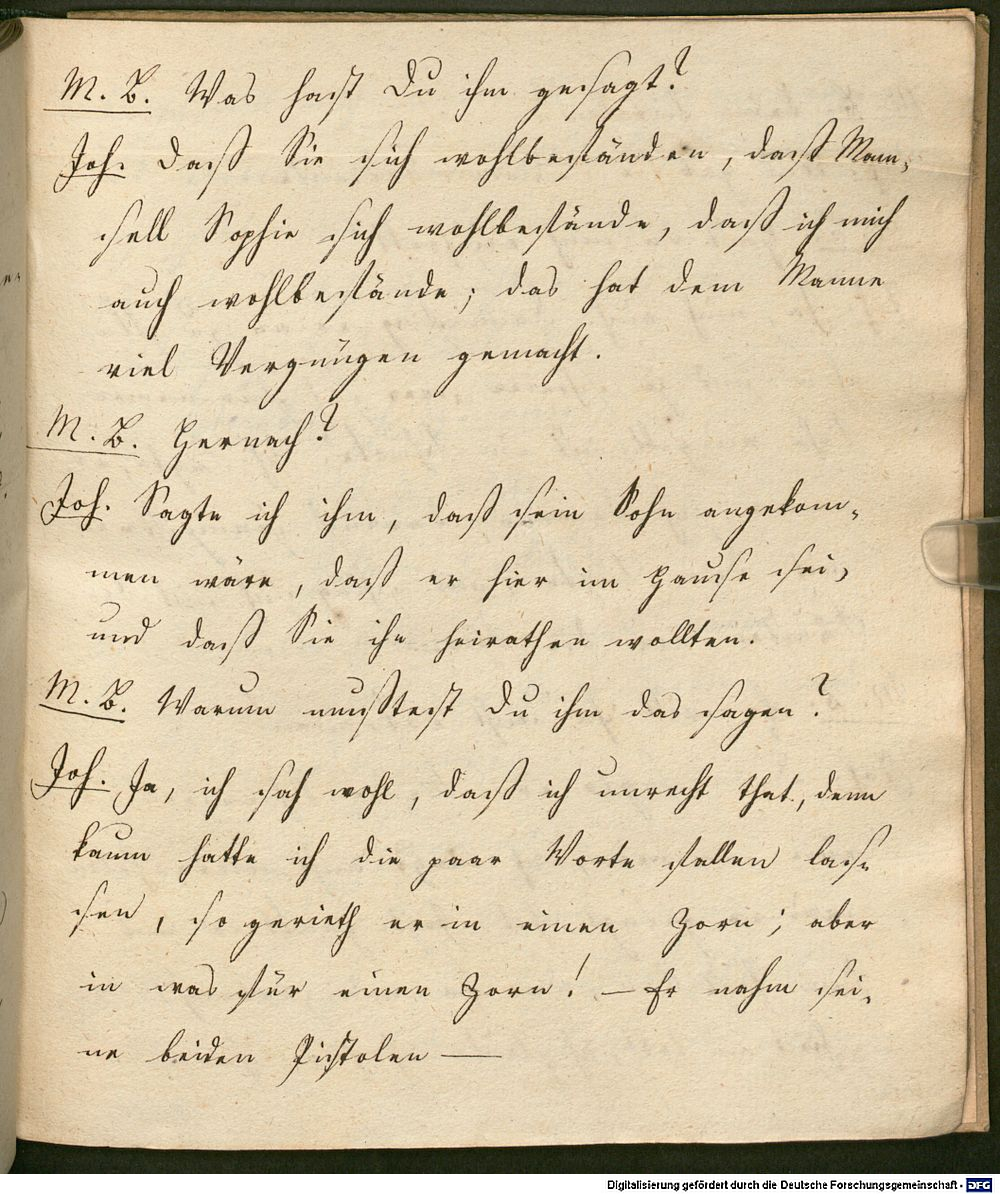 M. B. Was hast Du ihm gesagt?
Joh. Daß Sie sich wohlbeständen, daß Mam-
sell Sophie sich wohlbestände, daß ich mich
auch wohlbestände; das hat dem Manne
viel Vergnügen gemacht.
M. B. Hernach?
Joh. Sagte ich ihm, daß sein Sohn angekom-
men wäre, daß er hier im Hause sei,
und daß Sie ihn heirathen wollten.
M. B. Warum mußtest Du ihm das sagen?
Joh. Ja, ich sah wohl, daß ich unrecht that, denn
kaum hatte ich die paar Worte fallen las-
sen, so gerieth er in einen Zorn; aber
in was für einen Zorn! — Er nahm sei-
ne beiden Pistolen —
Digitalisierung gefördert durch die Deutsche Forschungsgemeinschaft - DFG